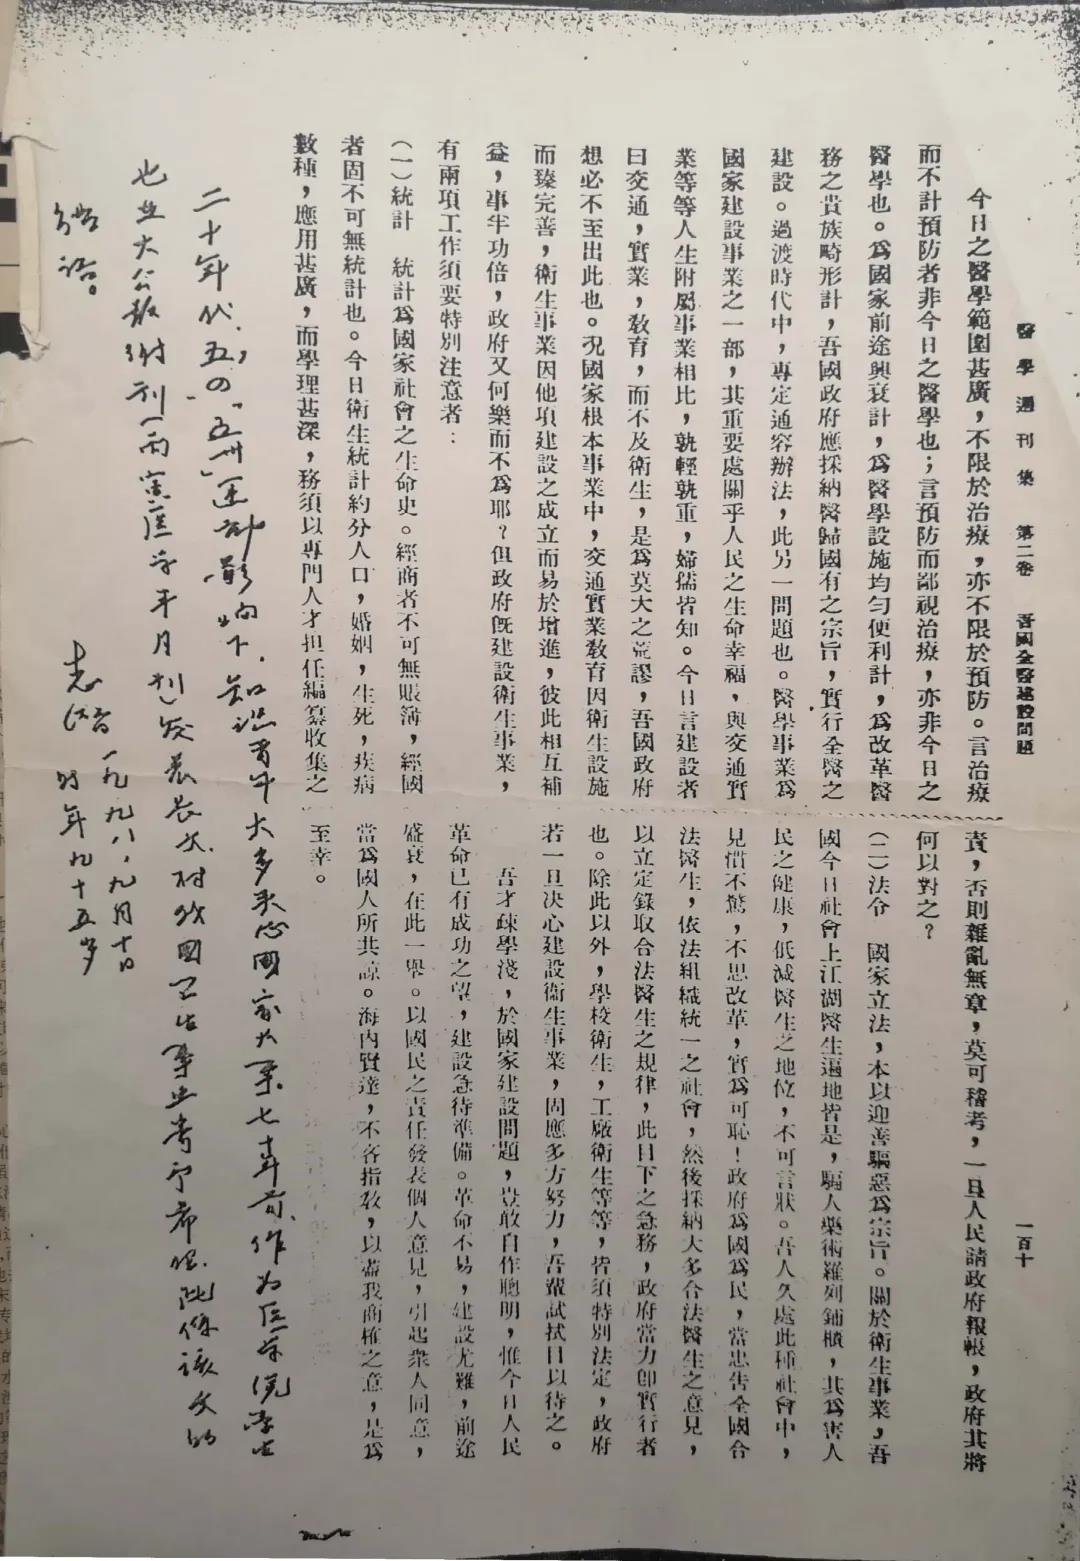 醫學週刊集　第二卷　吾國全醫建設問題　一百十
今日之醫學範圍甚廣，不限於治療，亦不限於預防。言治療
而不計預防者非今日之醫學也；言預防而鄙視治療，亦非今日之
醫學也。爲國家前途興衰計，爲醫學設施均勻便利計，爲改革醫
務之貴族畸形計，吾國政府應採納醫歸國有之宗旨，實行全醫之
建設。過渡時代中，專定通容辦法，此另一問題也。醫學事業爲
國家建設事業之一部，其重要處關乎人民之生命幸福，與交通實
業等等人生附屬事業相比，孰輕孰重，婦孺皆知。今日言建設者
曰交通，實業，教育，而不及衛生，是爲莫大之荒謬，吾國政府
想必不至出此也。况國家根本事業中，交通實業教育因衛生設施
而臻完善，衛生事業因他項建設之成立而易於增進，彼此相互補
益，事半功倍，政府又何樂而不爲耶？但政府旣建設衛生事業，
有兩項工作須要特別注意者：
（一）統計　統計爲國家社會之生命史。經商者不可無賬簿，經國
者固不可無統計也。今日衛生統計約分人口，婚姻，生死，疾病
數種，應用甚廣，而學理甚深，務須以專門人才担任編纂收集之
責，否則雜亂無章，莫可稽考，一旦人民請政府報帳，政府其將
何以對之？
（二）法令　國家立法，本以迎善驅惡爲宗旨。關於衛生事業，吾
國今日社會上江湖醫生遍地皆是，騙人藥術羅列鋪櫃，其爲害人
民之健康，低減醫生之地位，不可言狀。吾人久處此種社會中，
見慣不驚，不思改革，實爲可恥！政府爲國爲民，當忠告全國合
法醫生，依法組織統一之社會，然後採納大多合法醫生之意見，
以立定錄取合法醫生之規律，此目下之急務，政府當力卽實行者
也。除此以外，學校衛生，工廠衛生等等，皆須特別法定，政府
若一旦決心建設衛生事業，固應多方努力，吾輩試拭目以待之。
吾才疎學淺，於國家建設問題，豈敢自作聰明，惟今日人民
革命已有成功之望，建設急待準備。革命不易，建設尤難，前途
盛衰，在此一舉。以國民之責任發表個人意見，引起衆人同意，
當爲國人所共諒。海內賢達，不吝指教，以盡我商榷之意，是爲
至幸。
二十年代，五の「五卅」运动影响下，知识青年大多关心国家大事，七十年前，作为医学院学生
也在大公报附刊（丙寅医学半月刊）发表长文，对我国卫生事业寄予希望，此系该文的
结语。
志潜 一九九八，九月十日
时年九十五岁